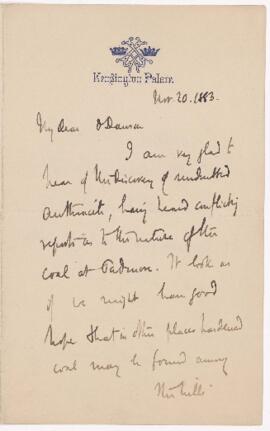 Kensington Palace.
Nov 20. 1883.
My dear Dawson
I am very glad to
hear of the discovery of undoubted
Anthracite, having heard conflicting
reports as to the nature of the
coal at Padmore. It looks as
if we might have good
hope that in other places hardened
coal may be found among
the hills